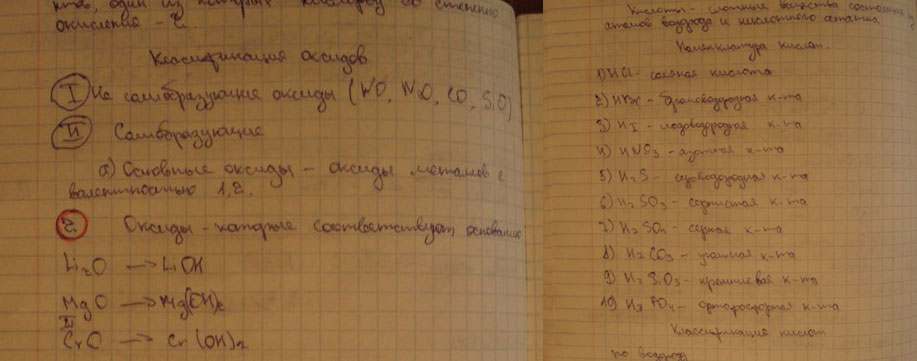 кта, один из которых кислород со степенью
окисления - 2.
Классификация оксидов
I Не солеобразующие оксиды (NO, N2O, CO, SiO)
II Солеобразующие
а) Основные оксиды - оксиды металлов с
валентностью 1,2.
2 Оксиды - которые соответствуют основание
Li2O → LiOH
MgO → Mg(OH)2
II
CrO → Cr(OH)2
Кислоты - сложные вещества состоящие
атомов водорода и кислотного остатка
Номенклатура кислот.
1) HCl - соляная кислота
2) HBr - бромоводородная к-та
3) HI - иодоводородная к-та
4) HNO3 - азотная к-та
5) H2S - сероводородная к-та
6) H2SO3 - сернистая к-та
7) H2SO4 - серная к-та
8) H2CO3 - угольная к-та
9) H2SiO3 - кремниевая к-та
10) H3PO4 - ортофосфорная к-та
Классификация кислот
по водород